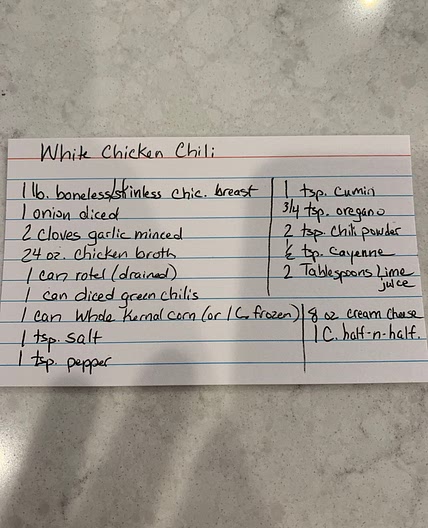 White Chicken Chili
1 lb. boneless/skinless chic. breast
1 onion diced
2 cloves garlic minced
24 oz. chicken broth
1 can rotel (drained)
1 can diced green chilis
1 can whole kernal corn (or 1 C. frozen)
1 tsp. salt
1 tsp. pepper
1 tsp. cumin
3/4 tsp. oregano
2 tsp. chili powder
1/2 tsp. cayenne
2 Tablespoons lime
juice
8 oz cream cheese
1 C. half-n-half.